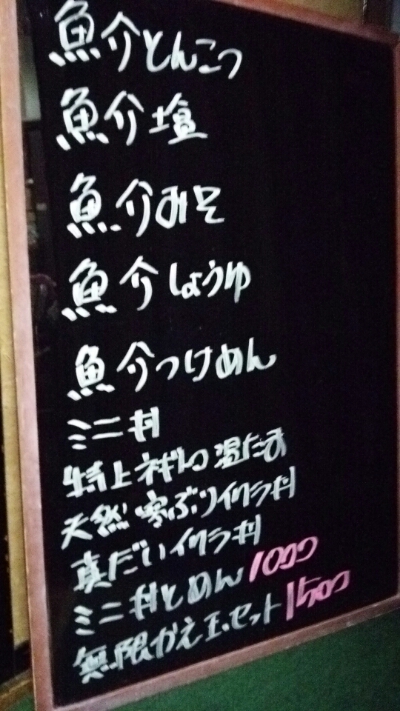 魚介とんこつ
魚介塩
魚介みそ
魚介しょうゆ
魚介つけめん
ミニ丼
特上ネギトロ温たま
天然寒ぶりイクラ丼
真だいイクラ丼
ミニ丼とめん1000
無限かえ玉セット1500